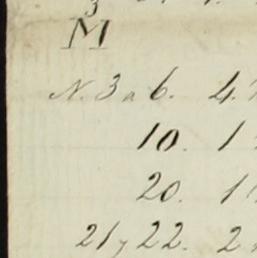 3
M
N. 3 a 6. 4.
10. 1
20. 1
21 y 22. 2